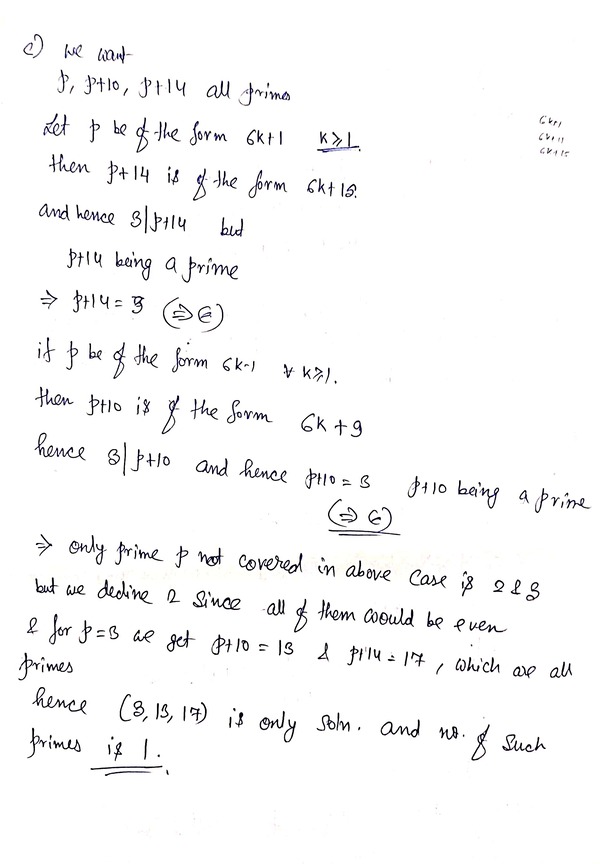 c) we want
p, p+10, p+14 all primes
Let p be of the form 6k+1 k≥1.
6k+1
6k+11
6k+15
then p+14 is of the form 6k+15.
and hence 3|p+14 but
p+14 being a prime
⇒ p+14 = 3 (⇒⇐)
if p be of the form 6k-1 ∀ k≥1.
then p+10 is of the form 6k+9
hence 3|p+10 and hence p+10 = 3 p+10 being a prime
(⇒⇐)
⇒ only prime p not covered in above case is 2 & 3
but we decline 2 since all of them would be even
& for p=3 we get p+10 = 13 & p+14 = 17, which are all
primes
hence (3, 13, 17) is only soln. and no. of such
primes is 1.